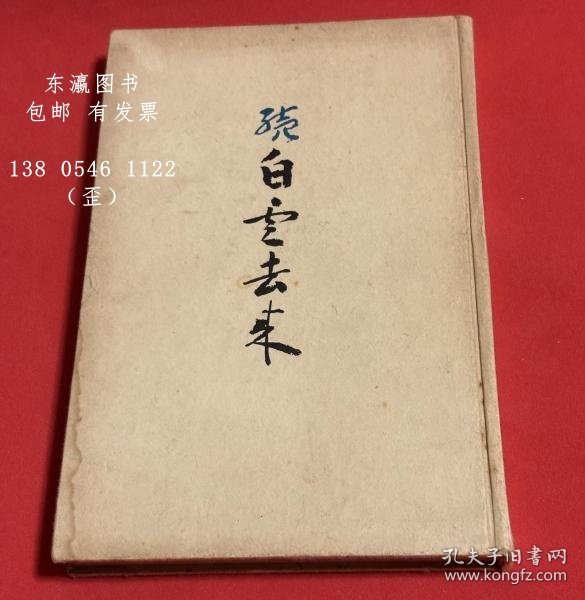 东瀛图书
包邮 有发票
138 0546 1122
（歪）
続白雲去来
孔夫子旧书网
www.kongfz.com